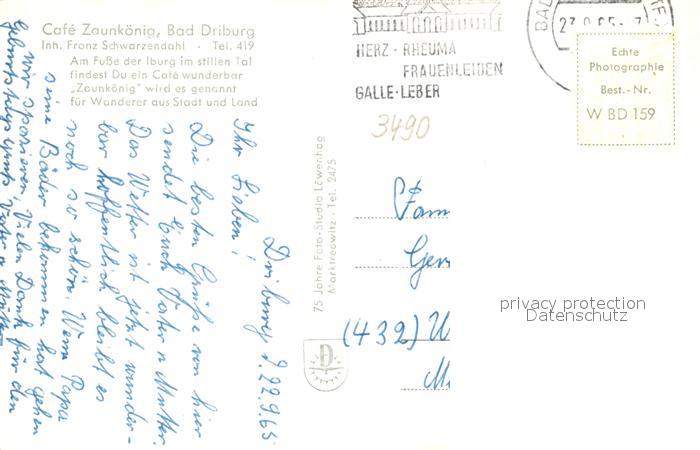 Café Zaunkönig, Bad Driburg
Inh. Franz Schwarzendahl · Tel. 419
Am Fuße der Iburg im stillen Tal
findest Du ein Café wunderbar
„Zaunkönig" wird es genannt
für Wanderer aus Stadt und Land
HERZ · RHEUMA
FRAUENLEIDEN
GALLE · LEBER
BAD
Echte
Photographie
Best.-Nr.
W BD 159
3490
Driburg d. 22.9.65
Ihr Lieben!
Die besten Grüße von hier
sendet Euch Vater u Mutter.
Das Wetter ist jetzt wunder-
bar hoffentlich bleibt es
noch so schön. Wenn Papa
seine Bäder bekommen hat gehen
wir spazieren. Vielen Dank für den
Vater u Mutter
75 Jahre Foto-Studio Löwenhag
Marktredwitz · Tel. 2475
D
Fam
Ger
(432) W
M
privacy protection
Datenschutz